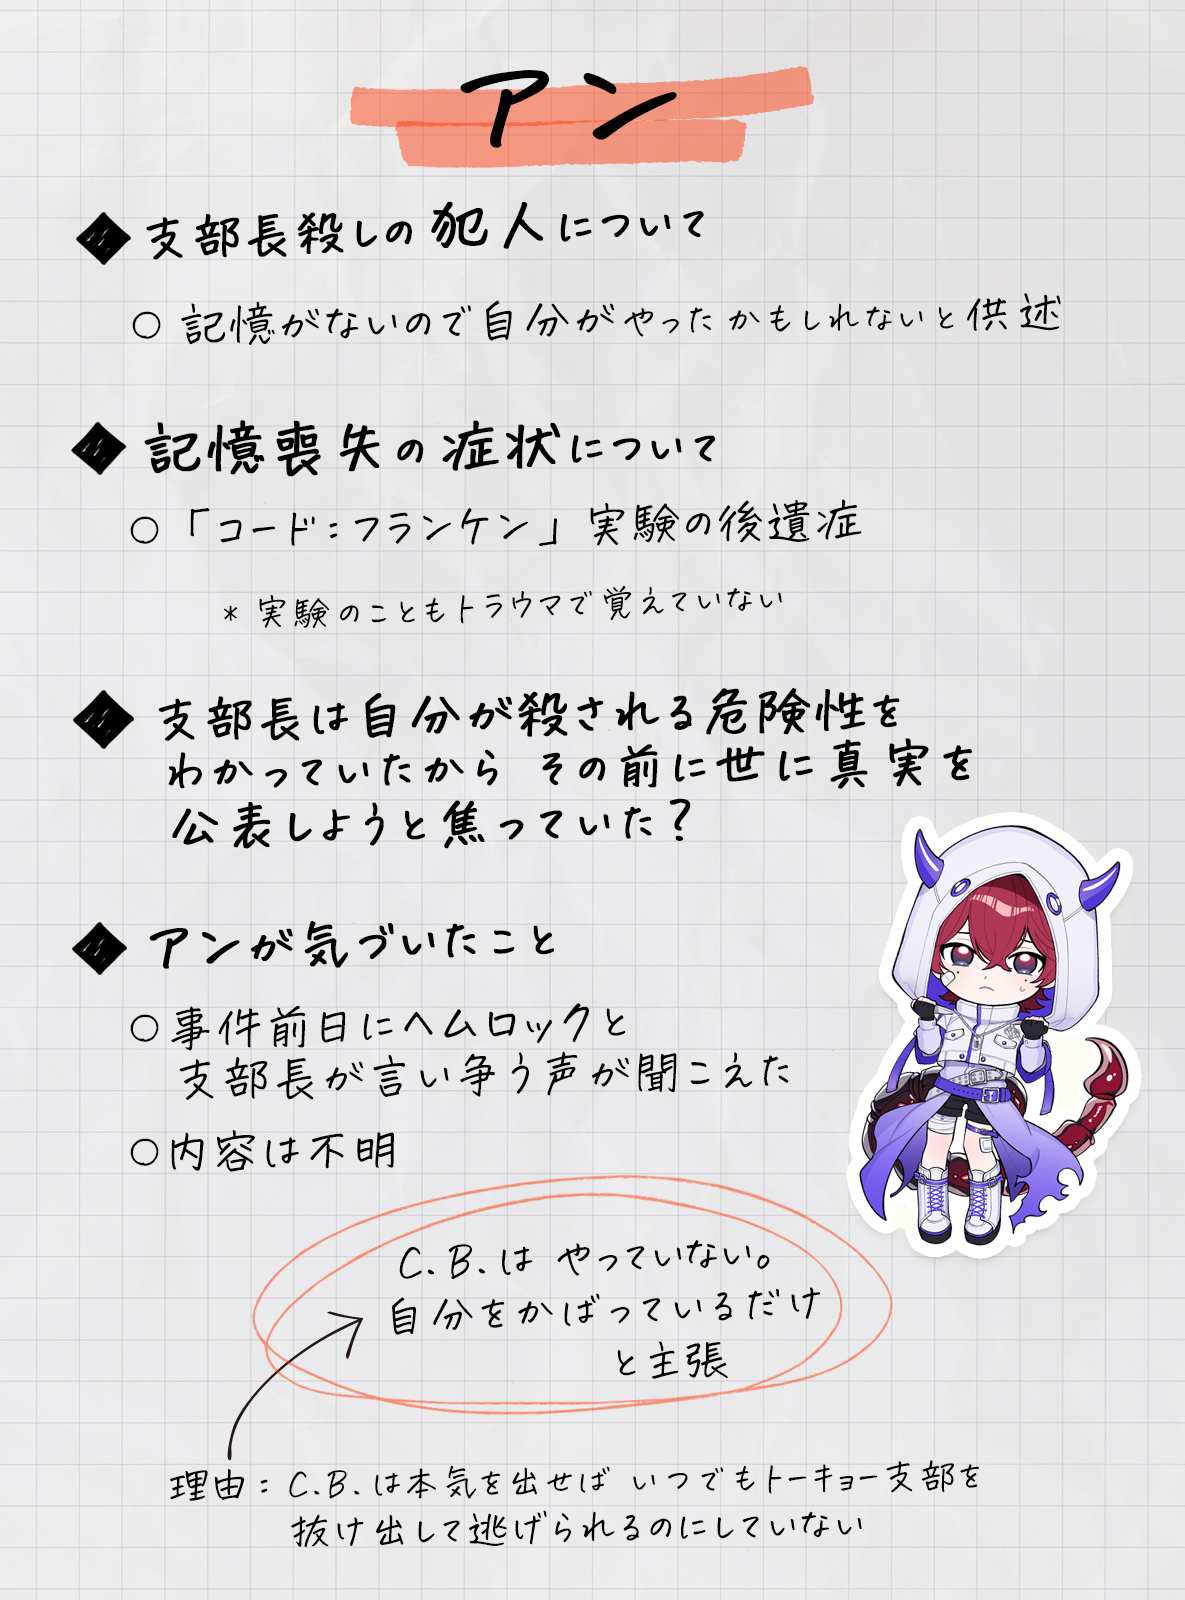 アン
◆ 支部長殺しの犯人について
○ 記憶がないので自分がやったかもしれないと供述
◆ 記憶喪失の症状について
○ 「コード:フランケン」実験の後遺症
* 実験のこともトラウマで覚えていない
◆ 支部長は自分が殺される危険性を
わかっていたから その前に世に真実を
公表しようと焦っていた?
◆ アンが気づいたこと
○ 事件前日にヘムロックと
支部長が言い争う声が聞こえた
○ 内容は不明
C.B.は やっていない。
自分をかばっているだけ
と主張
理由:C.B.は本気を出せば いつでもトーキョー支部を
抜け出して逃げられるのにしていない